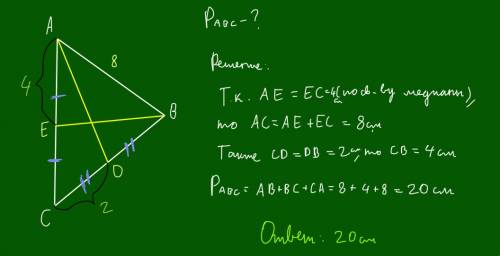 P ABC - ?
A
8
Решение:
4
Т.к. AE = EC = 4 (по св. медианы),
B
то AC = AE + EC = 8 см
E
Также CD = DB = 2 см, то CB = 4 см
D
P ABC = AB + BC + CA = 8 + 4 + 8 = 20 см
C
2
Ответ: 20 см